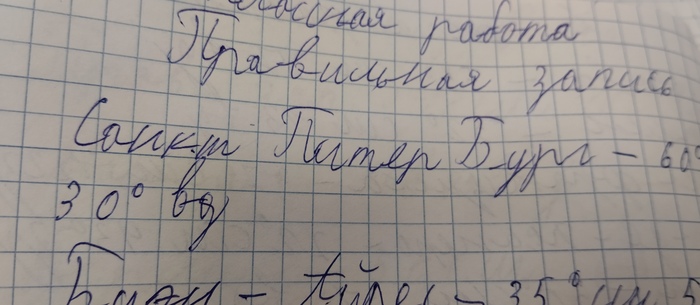 Классная работа
Правильная запись
Санкт Питер Бург - 60°
30° вд
Буэн - Айрес - 35°